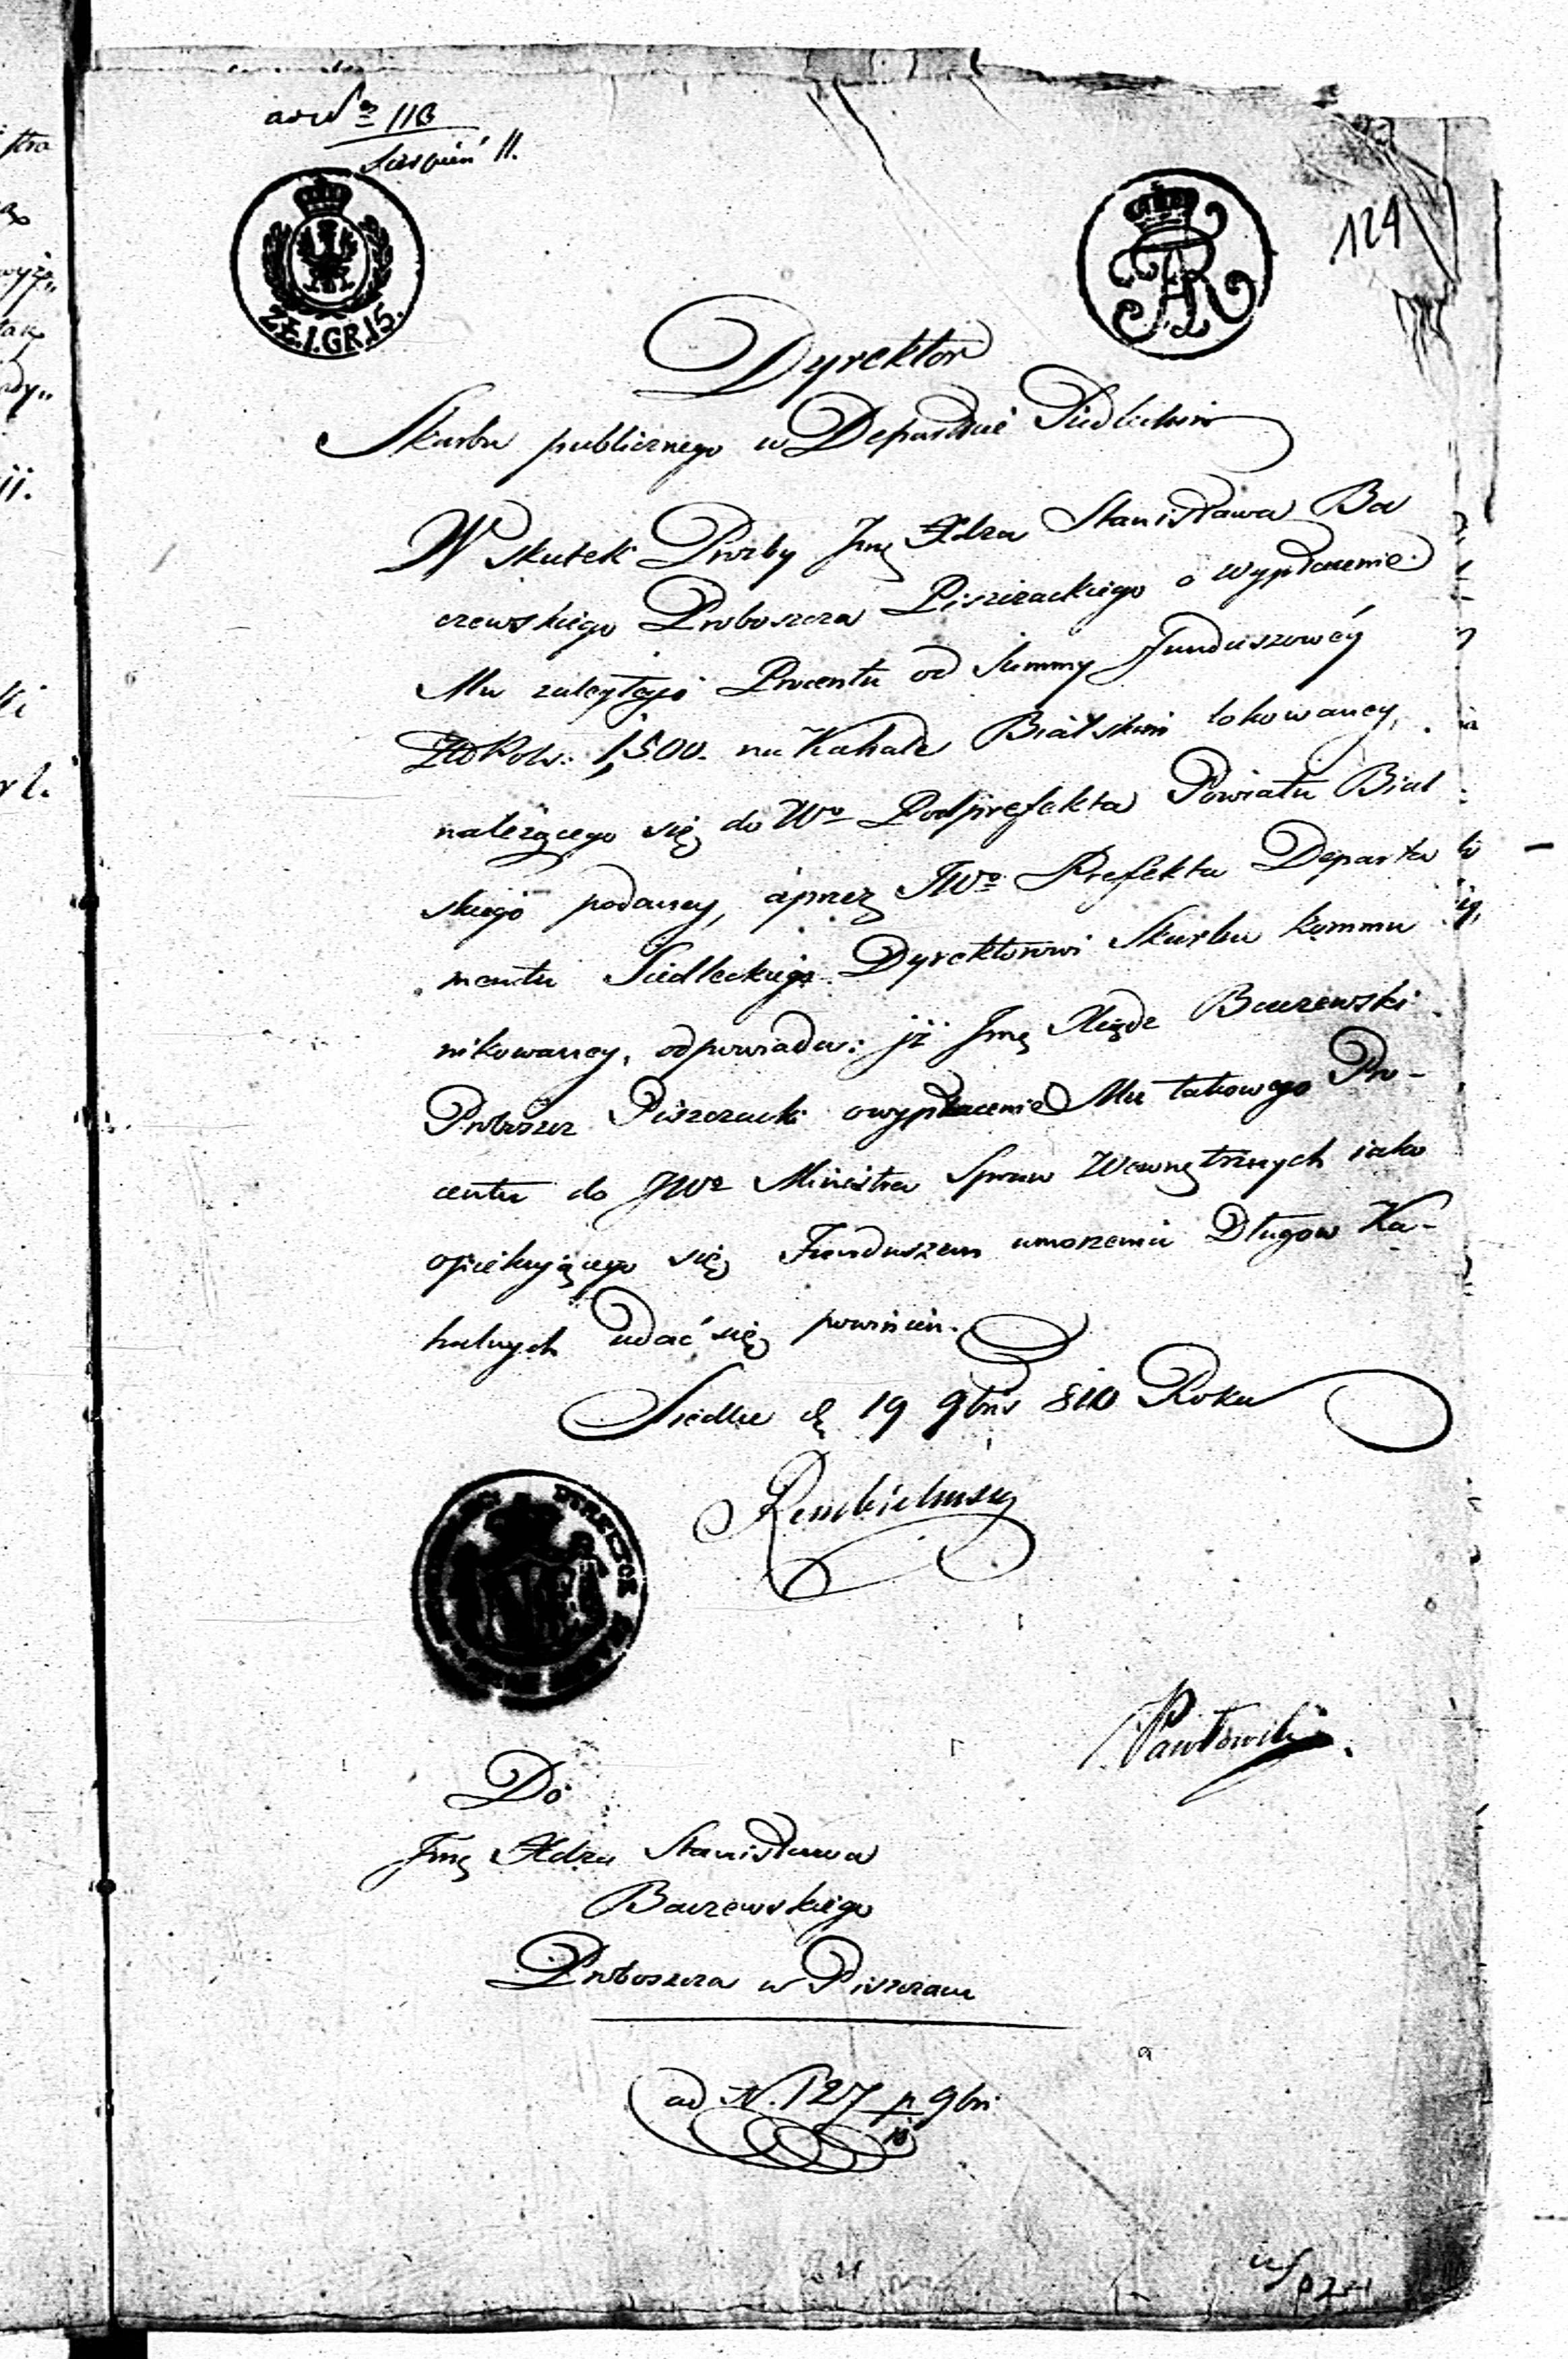 ad N<sup>o</sup> 118
Sierpień 11.
124
ZŁ.1.GR.15.
Dyrektor
Skarbu publicznego w Depar<sup>cie</sup> Siedleckim
W skutek Prozby Jmę Xdza Stanisława Ba
czewskiego Proboszcza Piszczackiego o wypłacenie
Mu zaległego Procentu od Summy Funduszowéy
Zło Pols: 1,500. na Kahale Bialskim lokowaney,
należącego się, do W<sup>o</sup> Podprefekta Powiatu Bial
skiego podaney, a przez JW<sup>o</sup> Prefekta Departa
mentu Siedleckiego Dyrektorowi Skarbu kommu
nikowaney, odpowiada: iż Jmę Xiądz Baczewski
Proboszcz Piszczacki o wypłacenie Mu takowego Pro-
centu do JW<sup>o</sup> Ministra Spraw Wewnętrznych iako
opiekującego się Funduszem umorzenia Długow Ka-
halnych udać się powinien.
Siedlce d. 19 9bris 810 Roku
Rembielinsky
DIREKTOR
Pawłowski
Do
Jmę Xdza Stanisława
Baczewskiego
Proboszcza w Piszczacu
ad N. 127 p 9bri